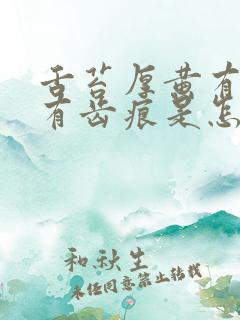 舌苔厚黄有
有齿痕是怎
和秋生
未经同意禁止转载